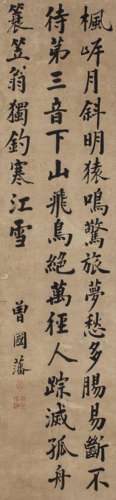 楓岸月斜明猿鳴驚旅夢愁多腸易斷不
待第三音下山飛鳥絕萬徑人踪滅孤舟
簑笠翁獨釣寒江雪
曾國藩